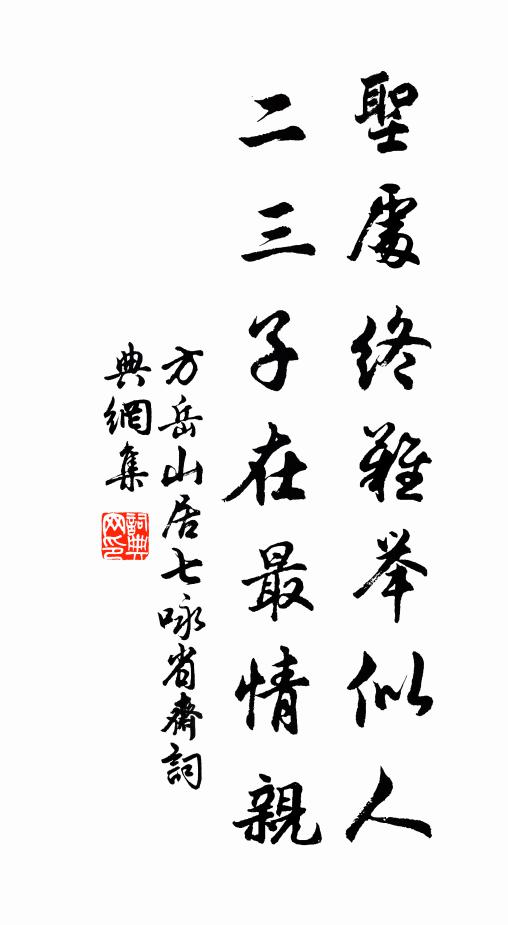 聖處終難举似人
二三子在最情親
方岳山居七咏省齋詞
典網集
詞典
网印